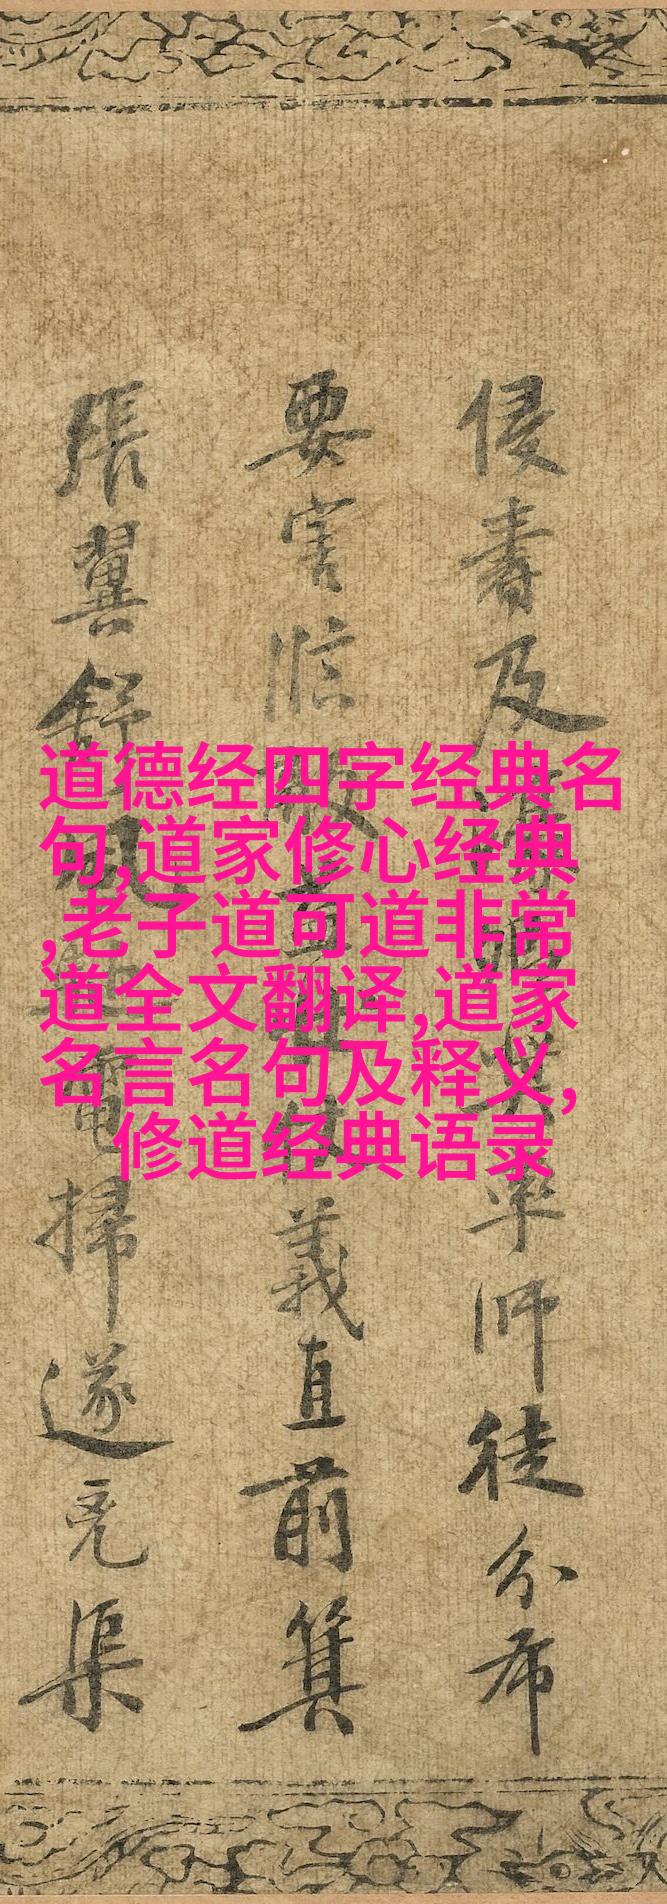 道德经四字经典名
句,道家修心经典
,老子道可道非常
道全文翻译,道家
名言名句及释义,
修道经典语录
侵書及率師徒分布
要害臨敵義直前箕
張翼舒風電掃遂克渠